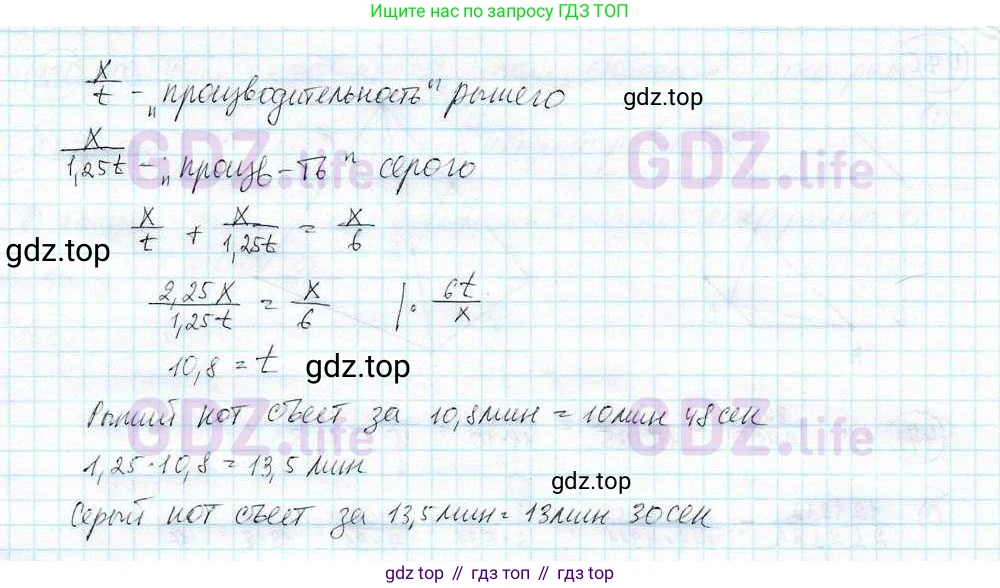 Ищите нас по запросу ГДЗ ТОП
x/t - "производительность" рыжего
gdz.top
x/1,25t - "произв-ть" серого
GDZ.life GDZ.life
x/t + x/1,25t = x/6
gdz.top
2,25x/1,25t = x/6 | · 6t/x
10,8 = t
gdz.top
Рыжий кот съест за 10,8мин = 10мин 48сек
GDZ.life GDZ.life
1,25·10,8 = 13,5 мин
gdz.top
Серый кот съест за 13,5мин = 13мин 30сек
gdz.top // гдз топ // gdz.top // гдз топ